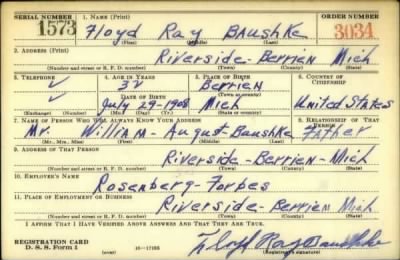 SERIAL NUMBER 1. NAME (Print) ORDER NUMBER
1573 Floyd Ray Baushke 3034
(First) (Middle) (Last)
2. ADDRESS (Print)
Riverside - Berrien Mich
(Number and street or R. F. D. number) (Town) (County) (State)
3. TELEPHONE 4. AGE IN YEARS 5. PLACE OF BIRTH 6. COUNTRY OF CITIZENSHIP
✓ 32 Berrien
DATE OF BIRTH (Town or county)
✓ July 29-1908 Mich United States
(Exchange) (Number) (Mo.) (Day) (Yr.) (State or country)
7. NAME OF PERSON WHO WILL ALWAYS KNOW YOUR ADDRESS 8. RELATIONSHIP OF THAT PERSON
Mr. William - August - Baushke Father
(Mr., Mrs., Miss) (First) (Middle) (Last)
9. ADDRESS OF THAT PERSON
Riverside - Berrien - Mich
(Number and street or R. F. D. number) (Town) (County) (State)
10. EMPLOYER'S NAME
Rosenberg - Forbes
11. PLACE OF EMPLOYMENT OR BUSINESS
Riverside - Berrien Mich
(Number and street or R. F. D. number) (Town) (County) (State)
I AFFIRM THAT I HAVE VERIFIED ABOVE ANSWERS AND THAT THEY ARE TRUE.
REGISTRATION CARD
D. S. S. Form 1 16-17105 Floyd Ray Baushke
(Registrant's signature)